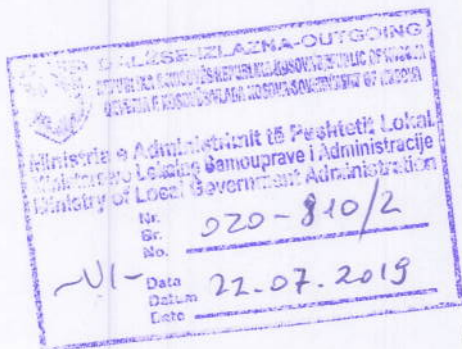 DALËSE-IZLAZNA-OUTGOING
REPUBLIKA E KOSOVËS-REPUBLIKA KOSOVA-REPUBLIC OF KOSOVO
QEVERIA E KOSOVËS-VLADA KOSOVA-GOVERNMENT OF KOSOVO
Ministria e Administrimit të Pushtetit Lokal
Ministarstvo Lokalne Samouprave i Administracije
Ministry of Local Government Administration
Nr.
Br.
No. 020-810/2
Data
Datum 22.07.2019
Date